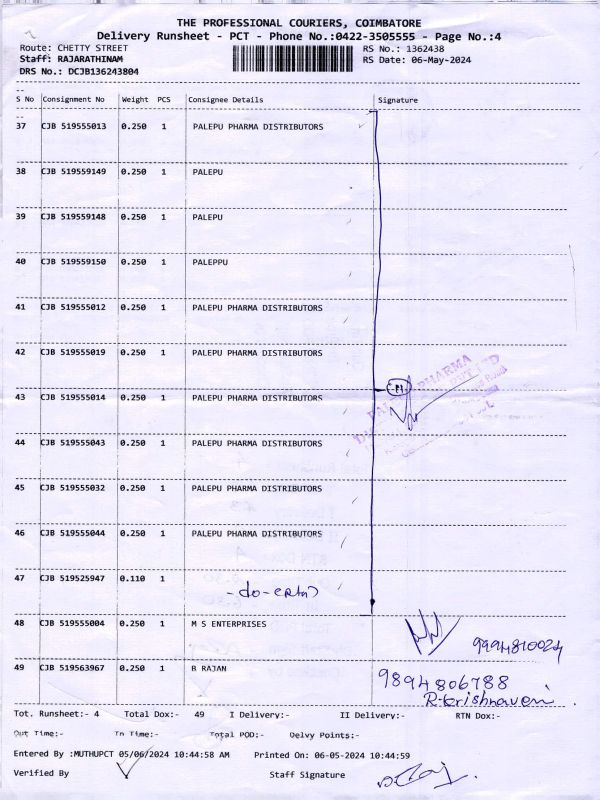 THE PROFESSIONAL COURIERS, COIMBATORE
Delivery Runsheet - PCT - Phone No.:0422-3505555 - Page No.:4
Route: CHETTY STREET RS No.: 1362438
Staff: RAJARATHINAM RS Date: 06-May-2024
DRS No.: DCJB136243804
S No Consignment No Weight PCS Consignee Details Signature
37 CJB 519555013 0.250 1 PALEPU PHARMA DISTRIBUTORS
38 CJB 519559149 0.250 1 PALEPU
39 CJB 519559148 0.250 1 PALEPU
40 CJB 519559150 0.250 1 PALEPPU
41 CJB 519555012 0.250 1 PALEPU PHARMA DISTRIBUTORS
42 CJB 519555019 0.250 1 PALEPU PHARMA DISTRIBUTORS
43 CJB 519555014 0.250 1 PALEPU PHARMA DISTRIBUTORS
44 CJB 519555043 0.250 1 PALEPU PHARMA DISTRIBUTORS
45 CJB 519555032 0.250 1 PALEPU PHARMA DISTRIBUTORS
46 CJB 519555044 0.250 1 PALEPU PHARMA DISTRIBUTORS
47 CJB 519525947 0.110 1 -do-
48 CJB 519555004 0.250 1 M S ENTERPRISES 9994810024
49 CJB 519563967 0.250 1 B RAJAN 9894806788
R. Krishnaveni
Tot. Runsheet:- 4 Total Dox:- 49 I Delivery:- II Delivery:- RTN Dox:-
Out Time:- In Time:- Total POD:- Delvy Points:-
Entered By :MUTHUPCT 05/06/2024 10:44:58 AM Printed On: 06-05-2024 10:44:59
Verified By Staff Signature